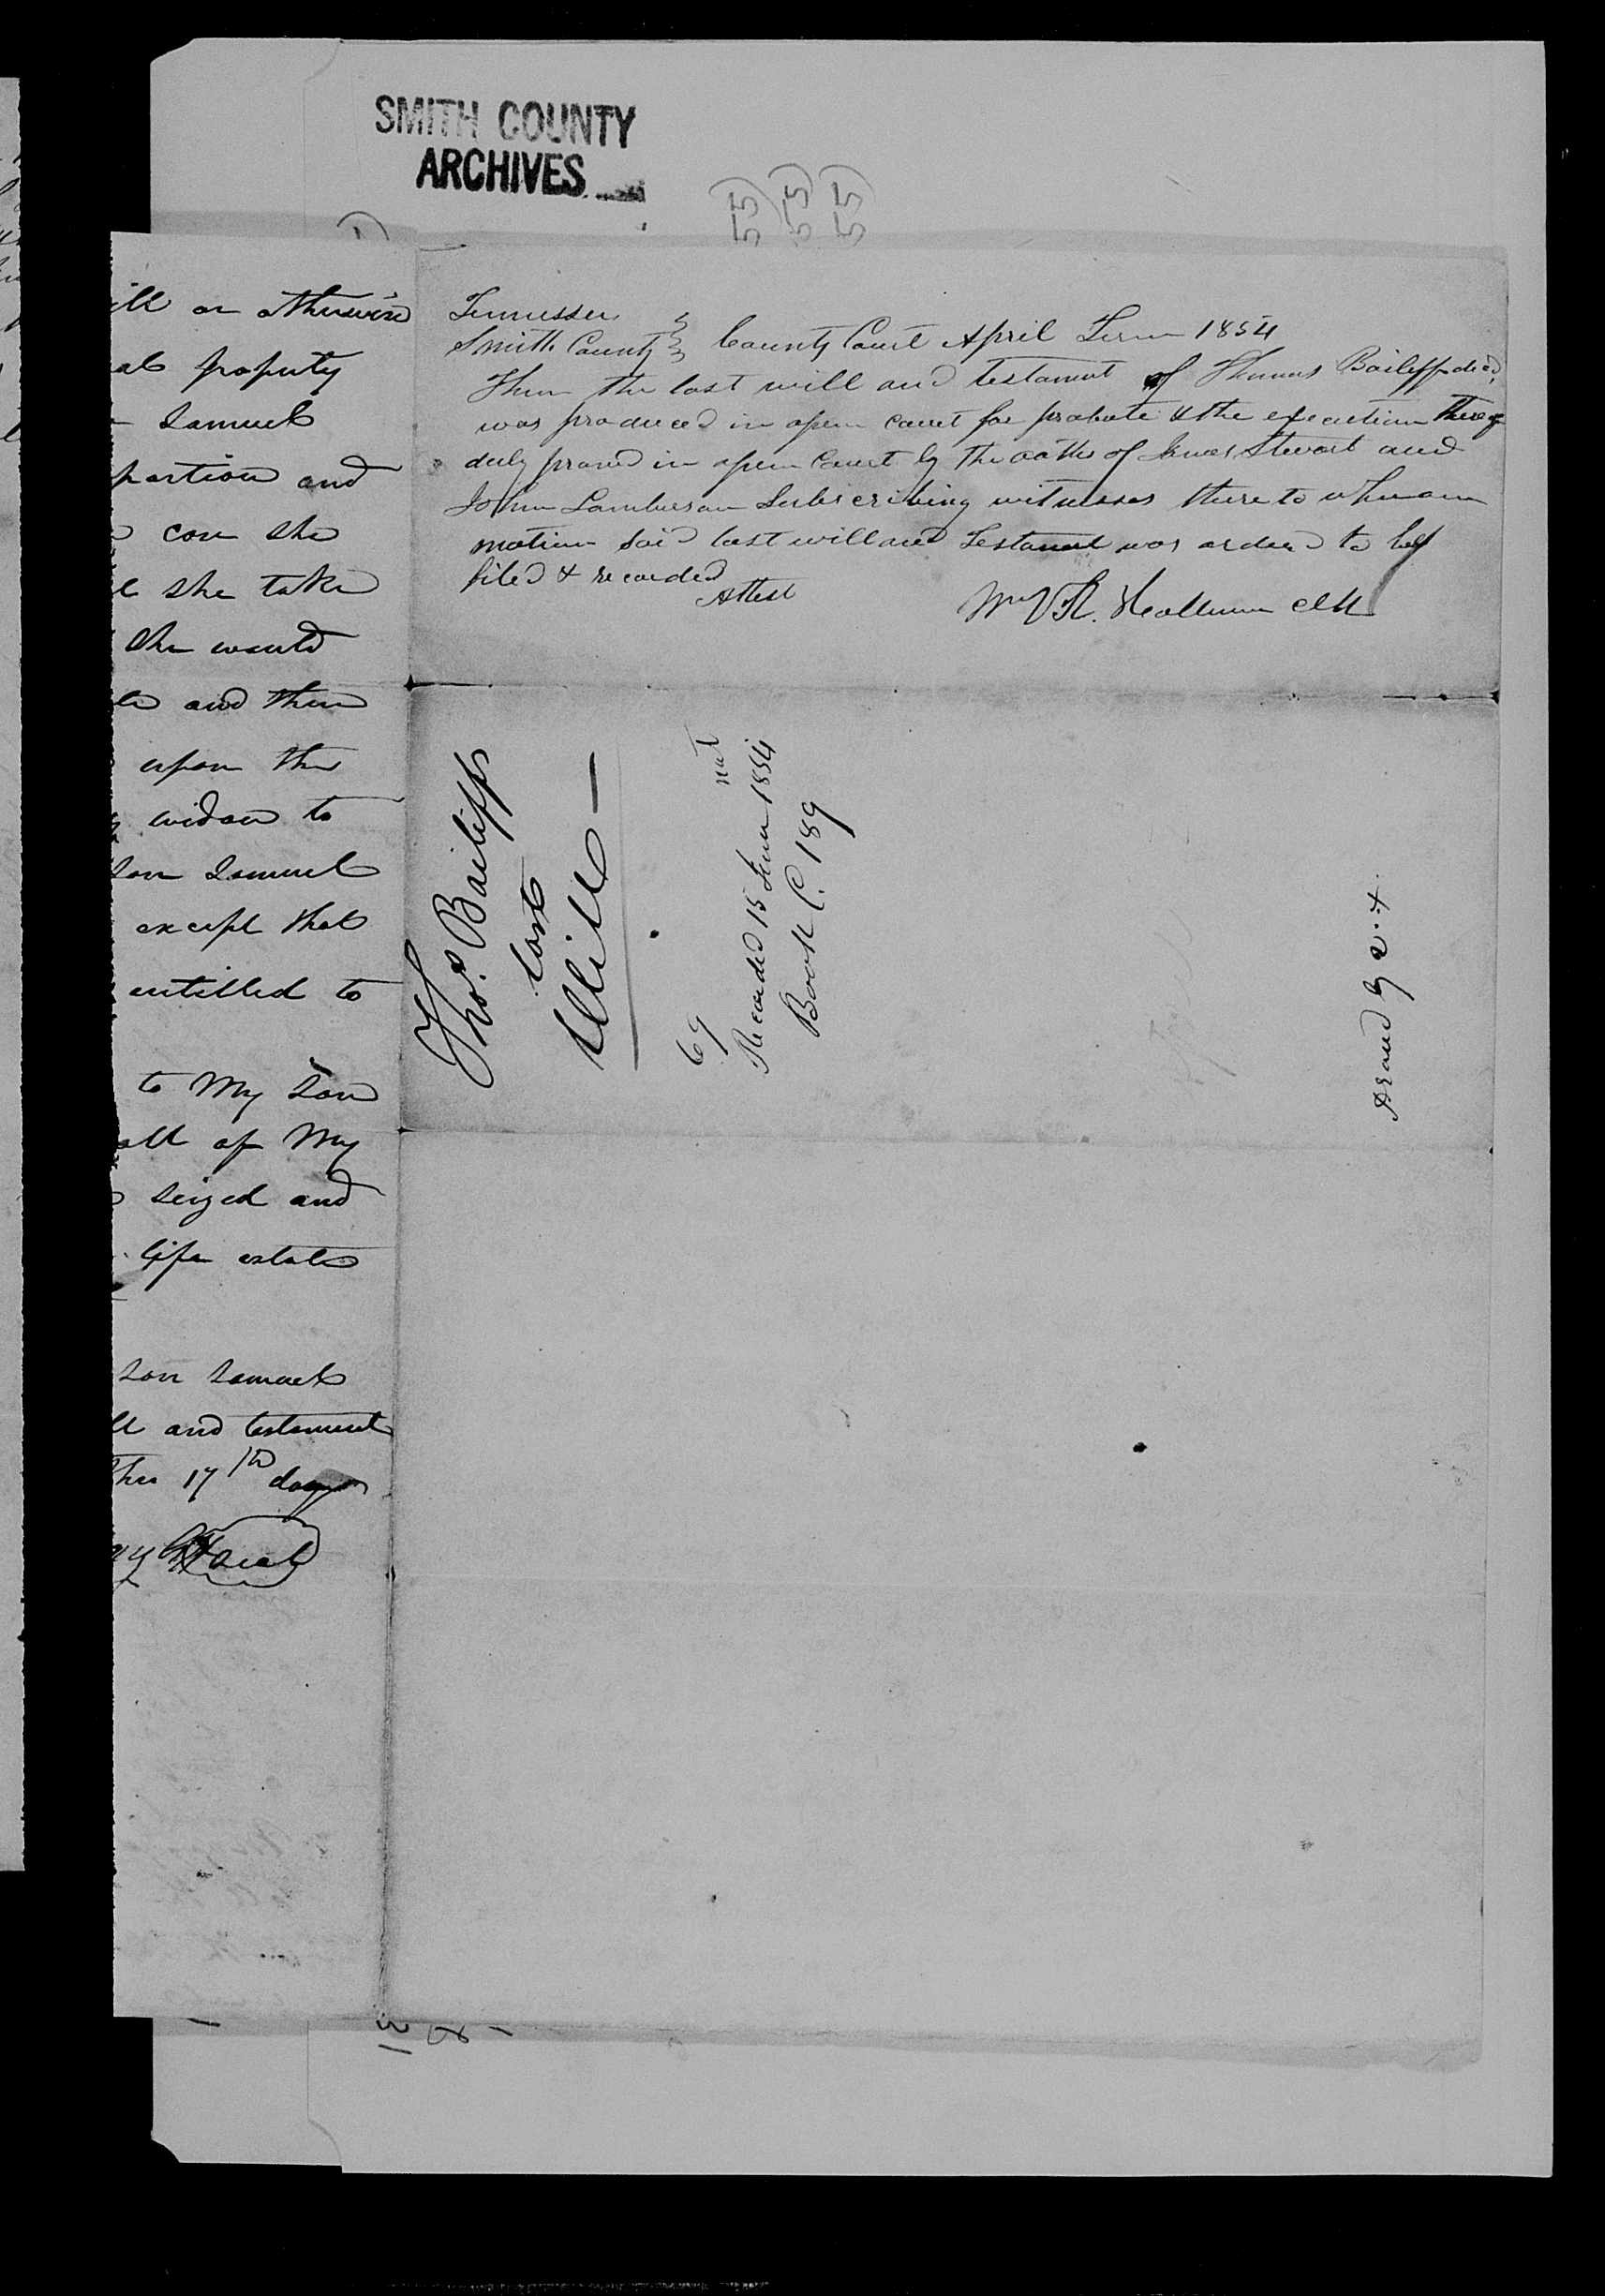 SMITH COUNTY
ARCHIVES
55)
55)
55)
ill or otherwise
al property
Samuel
portion and
can she
she take
she would
and then
upon the
widow to
son Samuel
except that
entitled to
to My Son
all of My
seized and
life estate
son Samuel
ll and testament
this 17th day
Seal
Tennessee
Smith County County Court April Term 1854
Then the last will and testament of Thomas Bailiff decd,
was produced in open court for probate & the execution thereof
duly proved in open Court by the oaths of James Stewart and
John Lamberson Subscribing witnesses there to whereon
motion said last will and Testament was ordered to be
filed & recorded
Attest
Wm V. R. Hallum Clk
Thos Bailiff
last
Will
69
Recorded 15 June 1854
Book C. 189